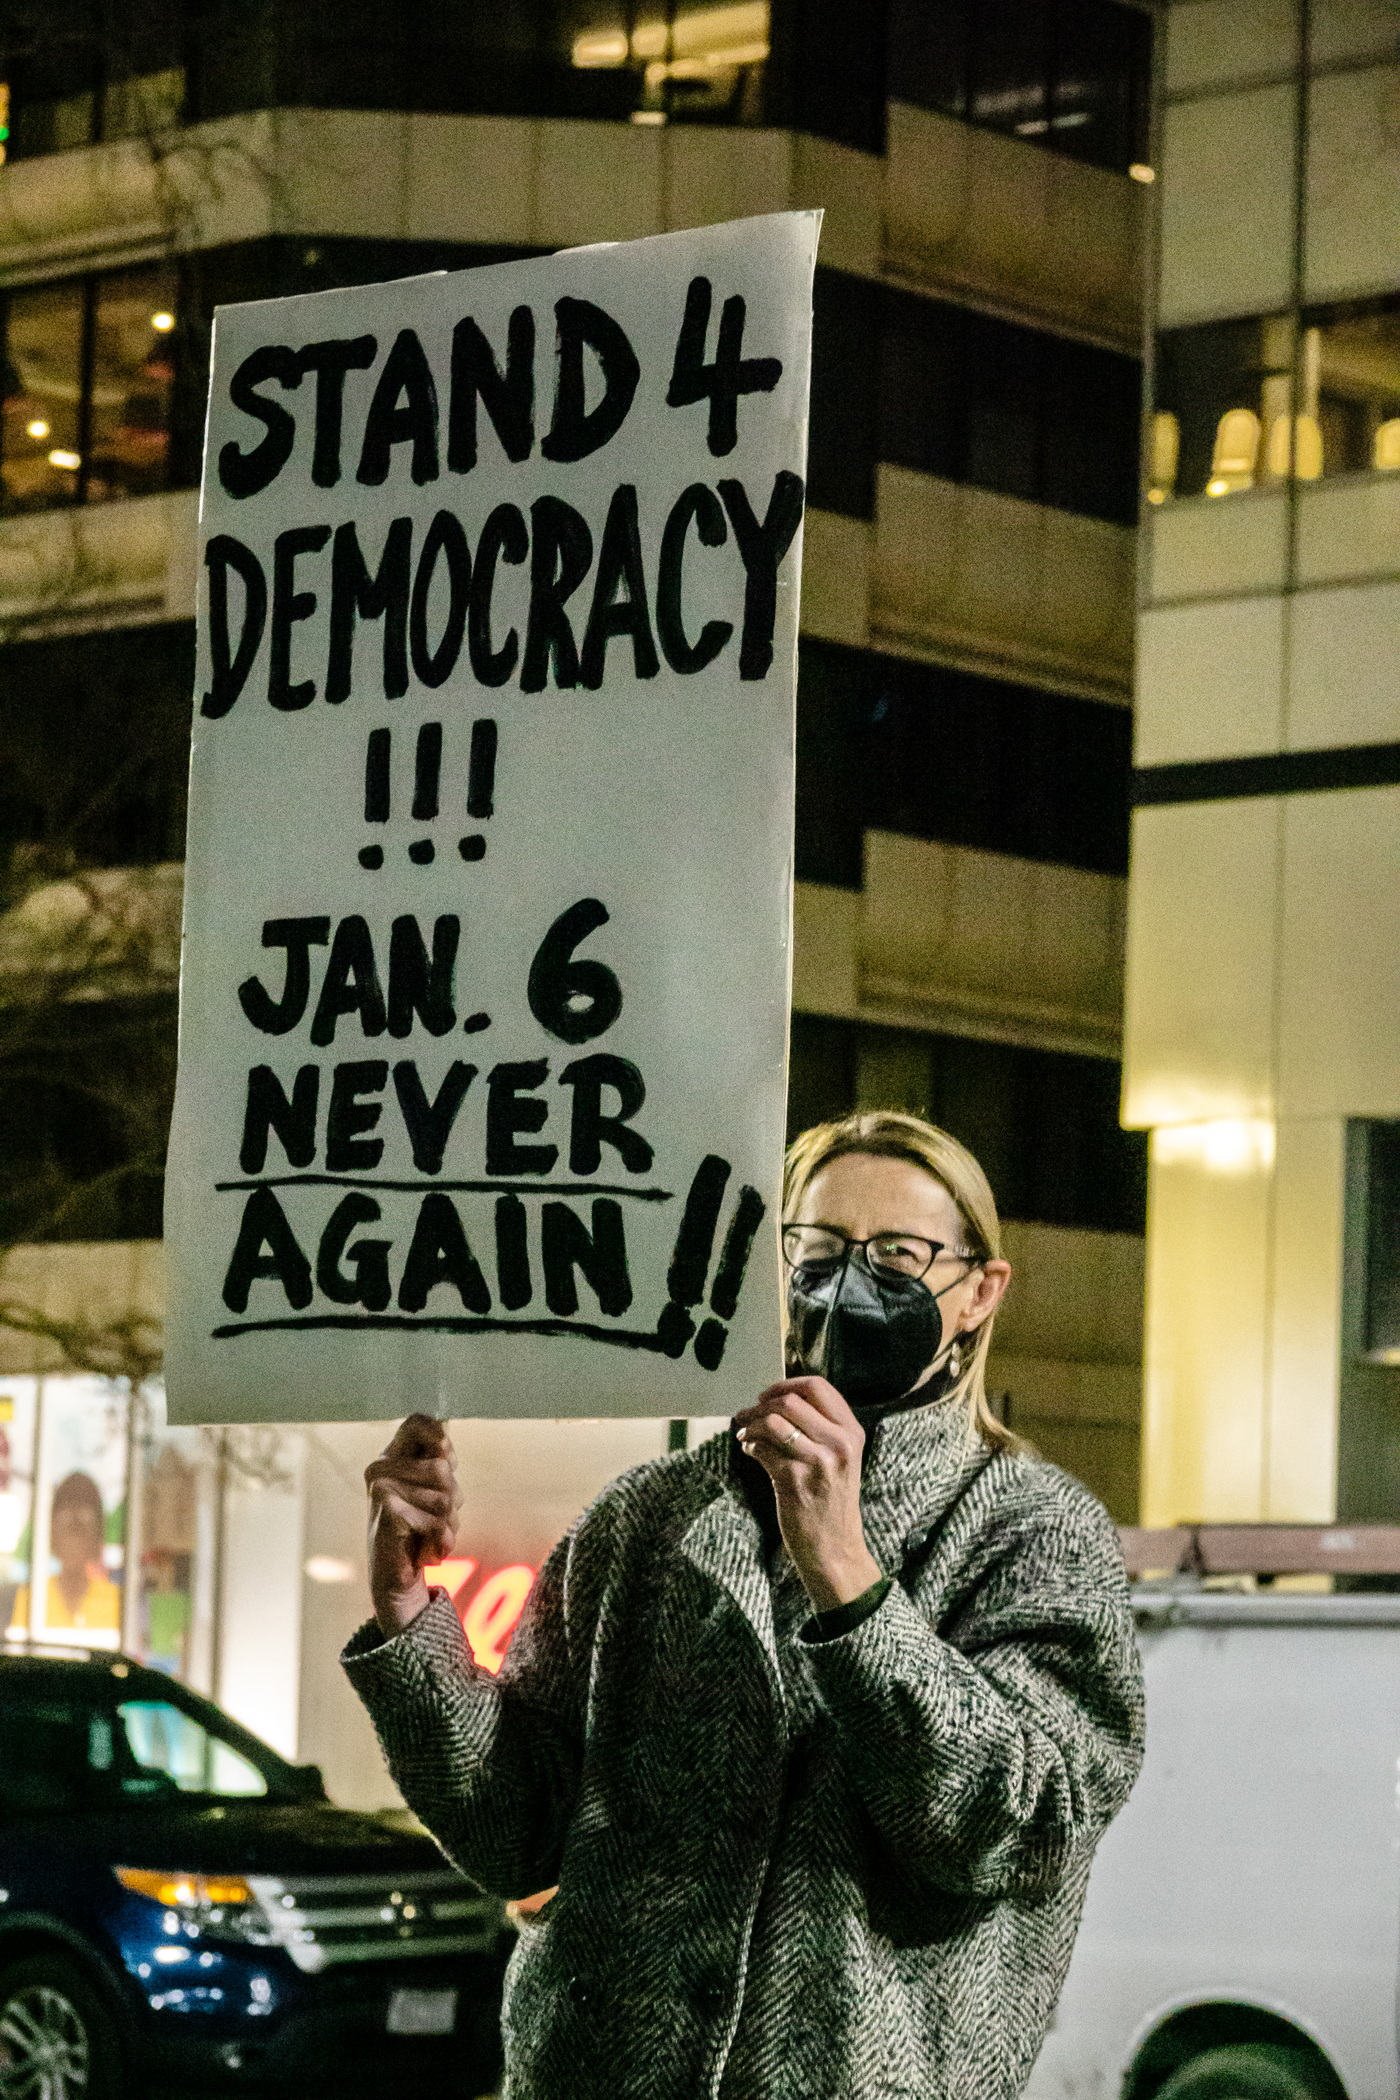 STAND 4
DEMOCRACY
!!!
JAN. 6
NEVER
AGAIN!!